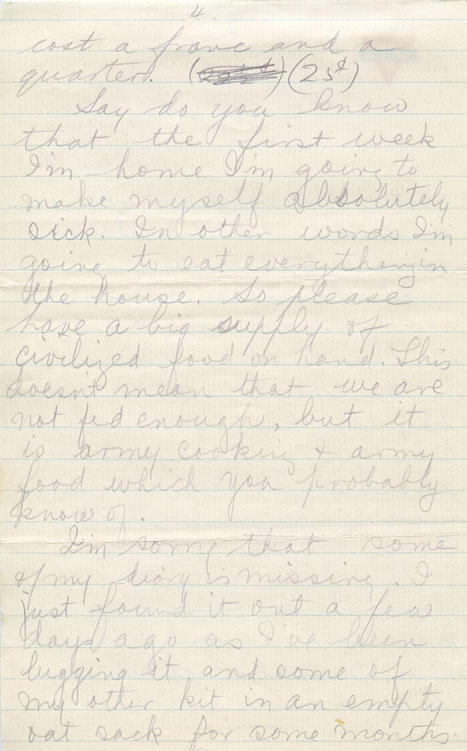 4.
cost a franc and a
quarter. (25¢)
Say do you know
that the first week
I'm home I'm going to
make myself absolutely
sick. In other words I'm
going to eat everything in
the house. So please
have a big supply of
civilized food on hand. This
doesnt mean that we are
not fed enough, but it
is army cooking & army
food which you probably
know of.
I'm sorry that some
of my diary is missing. I
just found it out a few
days ago as I've been
lugging it and some of
my other kit in an empty
oat sack for some months.